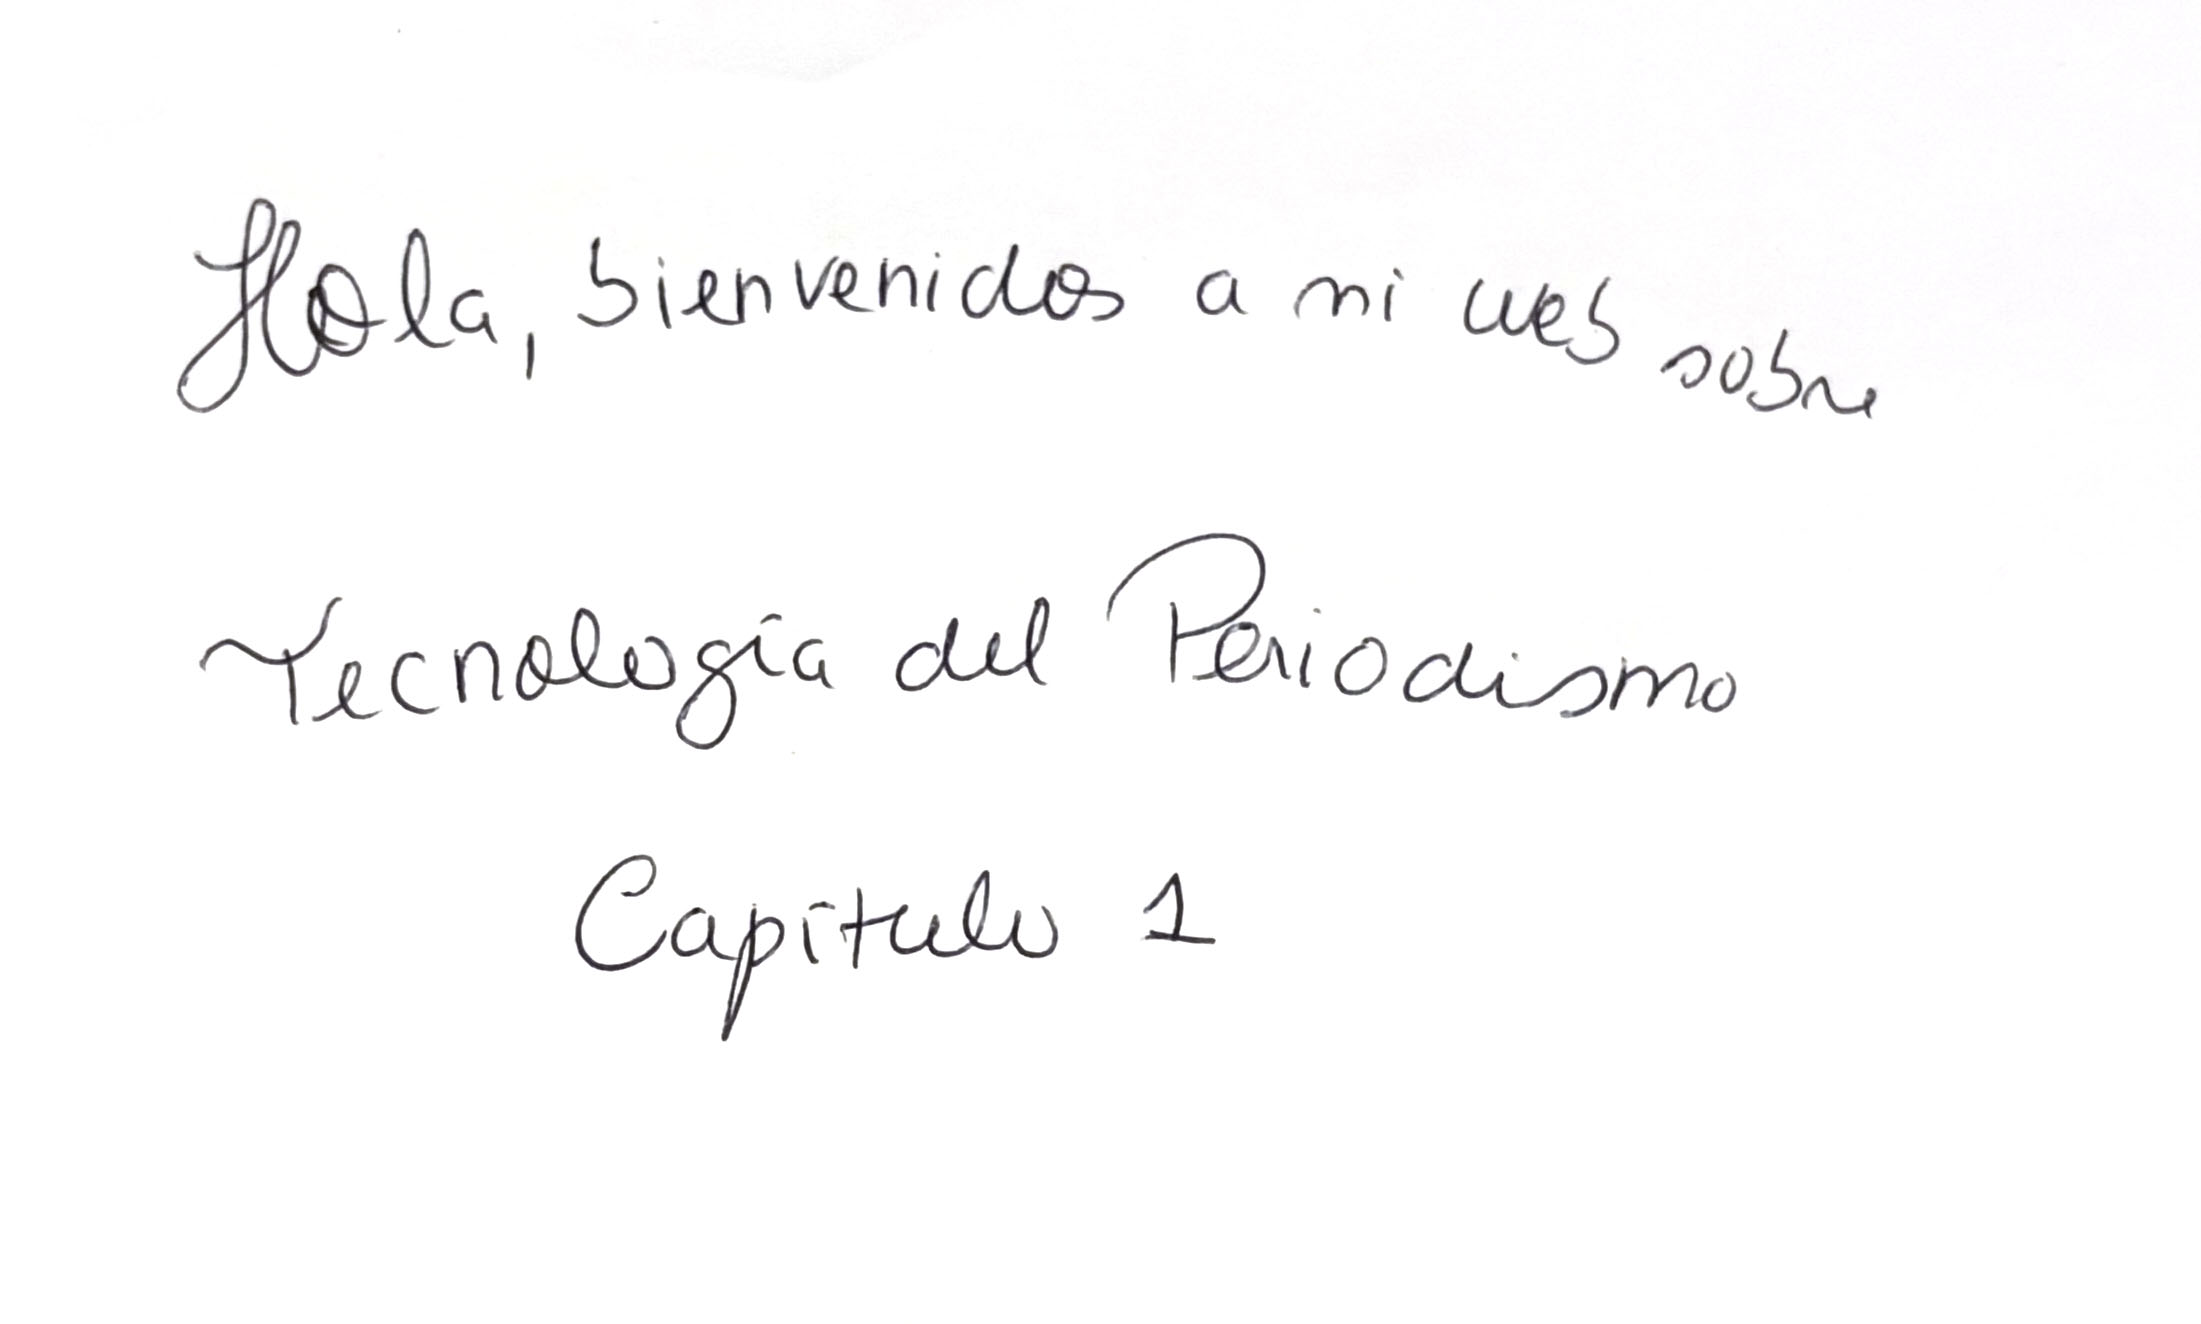 Hola, bienvenidos a mi web sobre
Tecnología del Periodismo
Capítulo 1